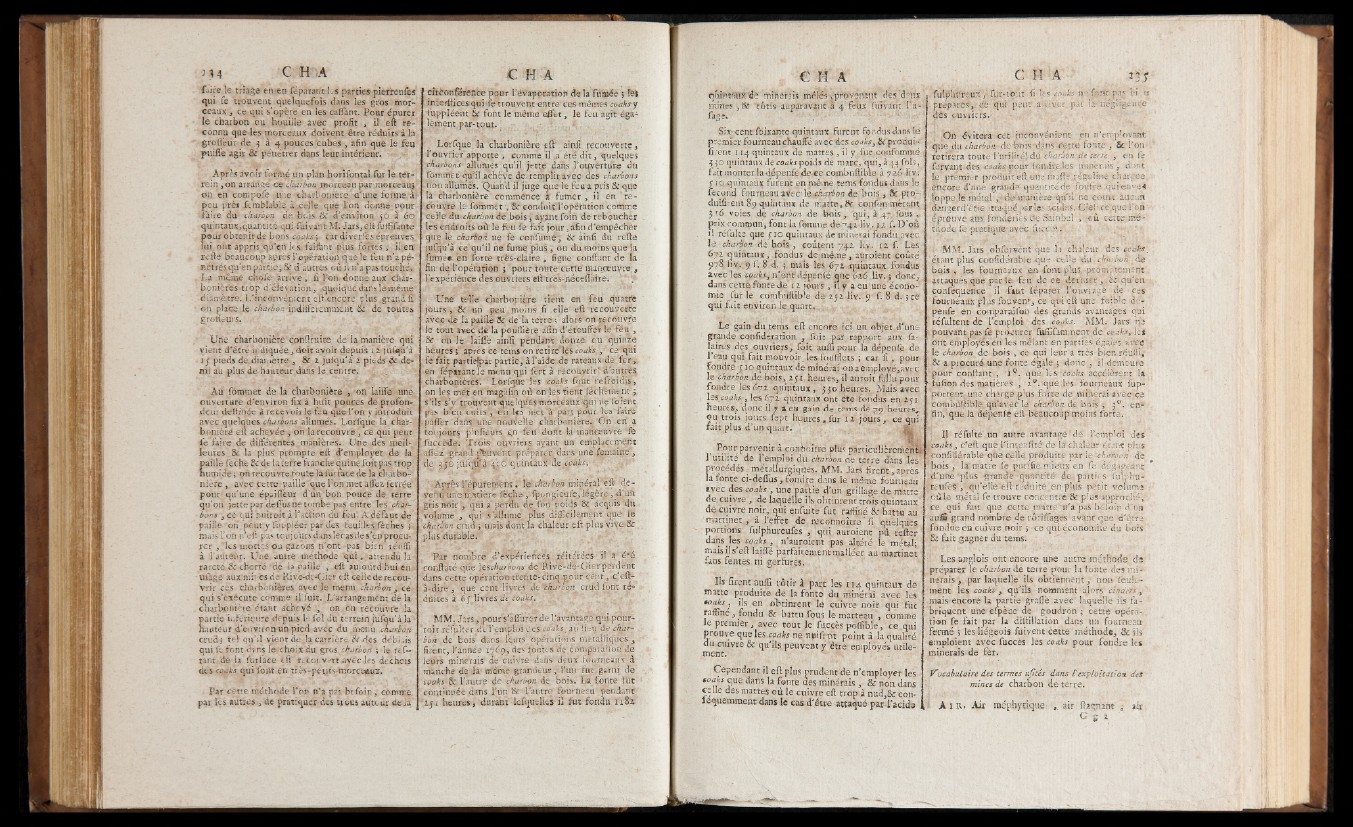 234 C H A
faire le triage en en séparant les parties pierreuses
qui se trouvent quelquefois dans les gros mor-
ceaux, ce qui s'opère en les cassant. Pour épurer
le charbon ou houille avec profit, il est re-
connu que les morceaux doivent être réduits à la
grosseur de 3 à 4 pouces cubes, afin que le feu
puisse agir & pénétrer dans leur intérieur.
Après avoir formé un plan horisontal sur le ter-
rein, on arrange ce charbon morceau par morceau;
on en compose une charbonière d'une forme à
peu près semblable à celle que l'on donne pour
faire du charbon de bois & d'environ 50 à 60
quintaux, quantité qui suivant M. Jars, est suffisante
pour obtenir de bons coaks; car diverses épreuves
lui ont appris qu'en les faisant plus fortes, il en
reste beaucoup après l'opération que le feu n'a pé-
nétrés qu'en partie, & d'autres où il n'a pas touché.
La même chose arrive, si l'on donne aux char-
bonières trop d'élévation, quoique dans le même
diamètre. L'inconvénient est encore plus grand si
on place le charbon indifféremment & de toutes
grosseurs.
Une charbonière construite de la manière qui
vient d'être indiquée, doit avoir depuis 12 jusqu'à
15 pieds de diamètre, & 2 jusqu'à 2 pieds & de-
mi au plus de hauteur dans le centre.
Au sommet de la charbonière, on laisse une
ouverture d'environ six à huit pouces de profon-
deur destinée à recevoir le feu que l'on y introduit
avec quelques charbons allumés. Lorsque la char-
bonière est achevée, on la recouvre, ce qui peut
se faire de différentes manières. Une des meil-
leures & la plus prompte est d'employer de la
paille sèche & de la terre franche qui ne soit pas trop
humide; on recouvre toute la surface de la charbo-
nière, avec cette paille que l'on met assez serrée
pour qu'une épaisseur d'un bon pouce de terre
qu'on jette par dessus ne tombe pas entre les char-
bons, ce qui nuiroit à l'action du feu. A défaut de
paille on peut y suppléer par des feuilles sèches;
mais l'on n'est pas toujours dans le cas de s'en procu-
rer, les mottes ou gazons n'ont pas bien réussi
à l'auteur. Une autre méthode qui, attendu la
rareté & cherté de la paille, est aujourd'hui en
usage aux mines de Rive-de-Gier est celle de recou-
vrir ces charbonières avec le menu charbon, ce
qui s'exécute comme il suit. L'arrangement de la
charbonière étant achevé, on en recouvre la
partie inférieure depuis le sol du terrein jusqu'à la
hauteur d'environ un pied avec du menu charbon
crud, tel qu'il vient de la carrière & des déblais
qui se font dans le choix du gros charbon; le res-
tant de la surface est recouvert avec les déchets
des coaks qui sont en très-petits morceaux.
Par cette méthode l'on n'a pas besoin, comme
par les autres, de pratiquer des trous autour de la
C H A
circonférence pour l'évaporation de la fumée; les
interstices qui se trouvent entre ces mêmes coaks y
suppléent & font le même effet, le feu agit éga-
lement par-tout.
Lorsque la charbonière est ainsi recouverte,
l'ouvrier apporte, comme il a été dit, quelques
charbons allumés qu'il jette dans l'ouverture du
sommet qu'il achève de remplir avec des charbons
non allumés. Quand il juge que le feu a pris & que
la charbonière commence à fumer, il en re-
couvre le sommet, & conduit l'opération comme
celle du charbon de bois, ayant soin de reboucher
les endroits où le feu se fait jour, afin d'empêcher
que le charbon ne se consume, & ainsi du reste
jusqu'à ce qu'il ne fume plus, ou du moins que la
fumée en sorte très-claire, signe constant de la
fin de l'opération; pour toute cette manœuvre,
l'expérience des ouvriers est très-nécessaire.
Une telle charbonière tient en feu quatre
jours, & un peu moins si elle est recouverte
avec de la paille & de la terre: alors on recouvre
le tout avec de la poussière afin d'étouffer le feu,
& on le laisse ainsi pendant douze ou quinze
heures; après ce tems on retire les coaks, ce qui
se fait partie par partie, à l'aide de rateaux de fer,
en séparant le menu qui sert à recouvrir d'autres
charbonières. Lorsque les coaks sont refroidis,
on les met en magasin où on les tient sèchement;
s'ils s'y trouvent quelques morceaux qui ne soient
pas bien cuits, on les met à part pour les faire
passer dans une nouvelle charbonière. On en a
toujours plusieurs en feu dont la manœuvre se
succède. Trois ouvriers ayant un emplacement
assez grand peuvent préparer dans une semaine,
de 350 jusqu'à 400 quintaux de coaks.
Après l'épurement, le charbon minéral est de-
venu une matière sèche, spongieuse, légère, d'un
gris noir, qui a perdu de son poids & acquis du
volume, qui s'allume plus difficilement que le
charbon crud; mais dont la chaleur est plus vive &
plus durable.
Par nombre d'expériences réitérées il a été
constaté que les charbons de Rive-de-Gier perdent
dans cette opération trente-cinq pour cent, c'est-
à-dire, que cent livres de charbon crud sont ré-
duites à 65 livres de coaks.
MM. Jars, pour s'assurer de l'avantage qui pour-
roit résulter de l'emploi des coaks, au lieu de char-
bon de bois dans leurs opérations métalliques,
firent, l'année 1769, des fontes de comparaison de
leurs minérais de cuivre dans deux fourneaux à
manche de la même grandeur, l'un fut garni de
coaks & l'autre de charbon de bois. La fonte fut
continuée dans l'un & l'autre fourneau pendant
251 heures, durant lesquelles il fut fondu 1182
C H A
quintaux de minérais mêlés, provenant des deux
mines, & rôtis auparavant à 4 feux suivant l'u-
sage.
Six-cent soixante quintaux furent fondus dans le
premier fourneau chauffé avec des coaks, & produi-
sirent 114 quintaux de mattes, il y fut consommé
330 quintaux de coaks poids de marc, qui, à 44 sols,
fait monter la dépense de ce combustible à 726 liv.
510 quintaux furent en même tems fondus dans le
second fourneau avec le charbon de bois, & pro-
duisirent 89 quintaux de matte, & consommèrent
316 voies de charbon de bois, qui, à 47 sous,
prix commun, font la somme de 742 liv. 12 s. D'où
il résulte que 510 quintaux de minerai fondu avec
le charbon de bois, coûtent 742 liv. 12 s. Les
672 quintaux, fondus de même, auroient coûté
978 liv. 9 s. 8 d.; mais les 672 quintaux fondus
avec les coaks, n'ont dépensé que 726 liv.; donc,
dans cette fonte de 12 jours, il y a eu une écono-
mie sur le combustible de 252 liv. 9 s. 8 d. ce
qui fait environ le quart.
Le gain du tems est encore ici un objet d'une
grande considération, soit par rapport aux sa-
laires des ouvriers, soit aussi pour la dépense de
l'eau qui fait mouvoir les soufflets; car si, pour
fondre 510 quintaux de minerai on a employé, avec
le charbon de bois, 251 heures, il auroit fallu pour
fondre les 672 quintaux, 330 heures. Mais avec
les coaks, les 672 quintaux ont été fondus en 251
heures, donc il y a eu gain de tems de 79 heures,
ou trois jours sept heures, sur 12 jours, ce qui
fait plus d'un quart.
Pour parvenir à connoître plus particulièrement
l'utilité de l'emploi du charbon de terre dans les
procédés métallurgiques. MM. Jars firent, après
la fonte ci-dessus, fondre dans le même fourneau
avec des coaks, une partie d'un grillage de matte
de cuivre, de laquelle ils obtinrent trois quintaux
de cuivre noir, qui ensuite fut raffiné & battu au
martinet, à l'effet de reconnoître si quelques
portions sulphureuses, qui auroient pu rester
dans les coaks, n'auroient pas altéré le métal;
mais il s'est laissé parfaitement malléer au martinet
sans fentes ni gersures.
Ils firent aussi rôtir à part les 114 quintaux de
matte produite de la fonte du minérai avec les
coaks, ils en obtinrent le cuivre noir qui fut
raffiné, fondu & battu sous le marteau, comme
le premier, avec tout le succès possible, ce qui
prouve que les coaks ne nuisent point à la qualité
du cuivre & qu'ils peuvent y être employés utile-
ment.
Cependant il est plus prudent de n'employer les
coaks que dans la fonte des minérais, & non dans
celle des mattes où le cuivre est trop à nud, & con-
séquemment dans le cas d'être attaqué par l'acide
C H A 235
sulphureux, sur-tout si les coaks ne sont pas bien
préparés, ce qui peut arriver par la négligence
des ouvriers.
On évitera cet inconvénient, en n'employant
que du charbon de bois dans cette fonte, & l'on
retirera toute l'utilité du charbon de terre, en se
servant des coaks pour fondre les minérais, dont
le premier produit est une matte réguline chargée
encore d'une grande quantité de soufre qui enve-
loppe le métal, de manière qu'il ne court aucun
danger d'être attaqué par les acides. C'est ce que l'on
éprouve aux fonderies de Sainbel, où cette mé-
thode se pratique avec succès.
MM. Jars observent que la chaleur des coaks
étant plus considérable que celle du charbon de
bois, les fourneaux en sont plus promptement
attaqués que par le feu de ce dernier, & qu'en
conséquence il faut réparer l'ouvrage de ces
fourneaux plus souvent, ce qui est une foible dé-
pense en comparaison des grands avantages qui
résultent de l'emploi des coaks. MM. Jars ne
pouvant pas se procurer suffisamment de coaks, les
ont employés en les mêlant en parties égales avec
le charbon de bois, ce qui leur a très bien réussi,
& a procuré une fonte égale; donc, il demeure
pour constant, 1°. que les coaks accélèrent la
fusion des matières, 2°. que les fourneaux sup-
portent une charge plus forte de minerai avec ce
combustible qu'avec le charbon de bois; 3°. en-
fin, que la dépense est beaucoup moins forte.
Il résulte un autre avantage de l'emploi des
coaks, c'est que l'intensité de la chaleur étant plus
considérable que celle produite par le charbon de
bois, la matte se purifie mieux en se dégageant
d'une plus grande quantité de parties sulphu-
reuses, qu'elle est réduite en plus petit volume
où le métal se trouve concentré & plus approché,
ce qui fait que cette matte n'a pas besoin d'un
aussi grand nombre de rôtissages avant que d'être
fondue en cuivre noir, ce qui économise du bois
& fait gagner du tems.
Les anglois ont encore une autre méthode de
préparer le charbon de terre pour la fonte des mi-
nérais, par laquelle ils obtiennent, non seule-
ment les coaks, qu'ils nomment alors cinders,
mais encore la partie grasse avec laquelle ils fa-
briquent une espèce de goudron; cette opéra-
tion se fait par la distillation dans un fourneau
fermé; les liégeois suivent cette méthode, & ils
emploient avec succès les coaks pour fondre les
minérais de fer.
Vocabulaire des termes usités dans l'exploitation des
mines de charbon de terre.
AIR. Air méphytique, air stagnant; air
G g 2